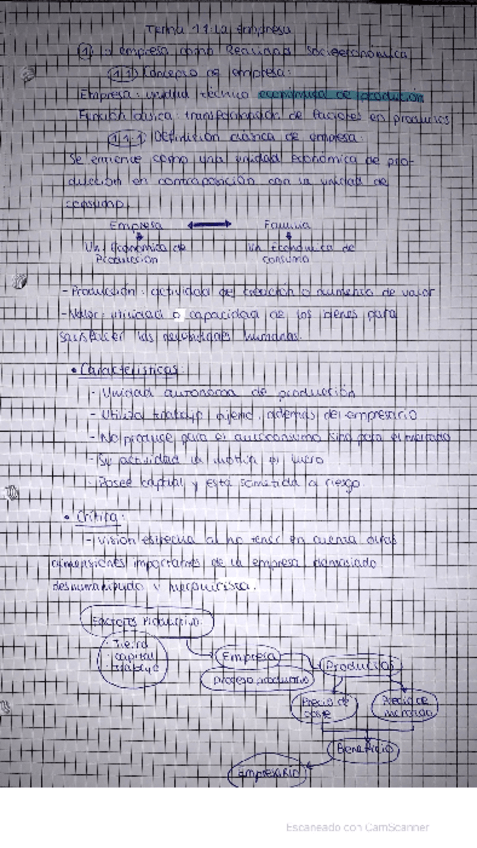 Tema 11 La Empresa
1. La empresa como Realidad Socioeconómica
1.1 Concepto de empresa:
Empresa: unidad técnico económica de producción
Función básica: transformación de factores en productos
1.1.1 Definición clásica de empresa:
Se entiende como una unidad económica de pro-
ducción en contraposición con la unidad de
consumo.
Empresa ↔ Familia
Un/ Económica de Producción
Un Económica de consumo
- Producción: actividad de creación o aumento de valor
- Valor: utilidad o capacidad de los bienes para
satisfacer las necesidades humanas.
• Características:
- Unidad autónoma de producción
- Utiliza trabajo ajeno, además del empresario
- No produce para el autoconsumo sino para el mercado
- Su actividad la motiva el lucro
- Posee capital y está sometida a riesgo
• Crítica:
- Visión al no tener en cuenta otras
dimensiones importantes de la empresa, demasiado
deshumanizado y mecanicista.
Factores Productivo
· Tierra
· Capital
· Trabajo
Empresa
Proceso productivo
Productos
Precio de coste
Precio de mercado
Beneficio
Empresario
Escaneado con CamScanner